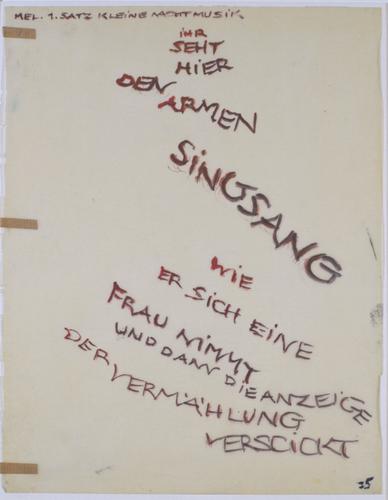 MEL. 1. SATZ KLEINE NACHTMUSIK
IHR
SEHT
HIER
DEN
ARMEN
SINGSANG
WIE
ER SICH EINE
FRAU NIMMT
UND DANN DIE ANZEIGE
DER VERMÄHLUNG
VERSCICKT
35